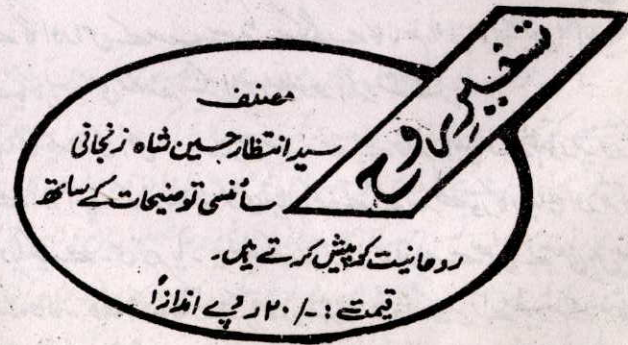 تسخیرِ روح
مصنف
سید انتظار حسین شاہ زنجانی
سائنسی توضیحات کے ساتھ
روحانیت کو پیش کرتے ہیں۔
قیمت: -/۲۰ روپے اندازاً